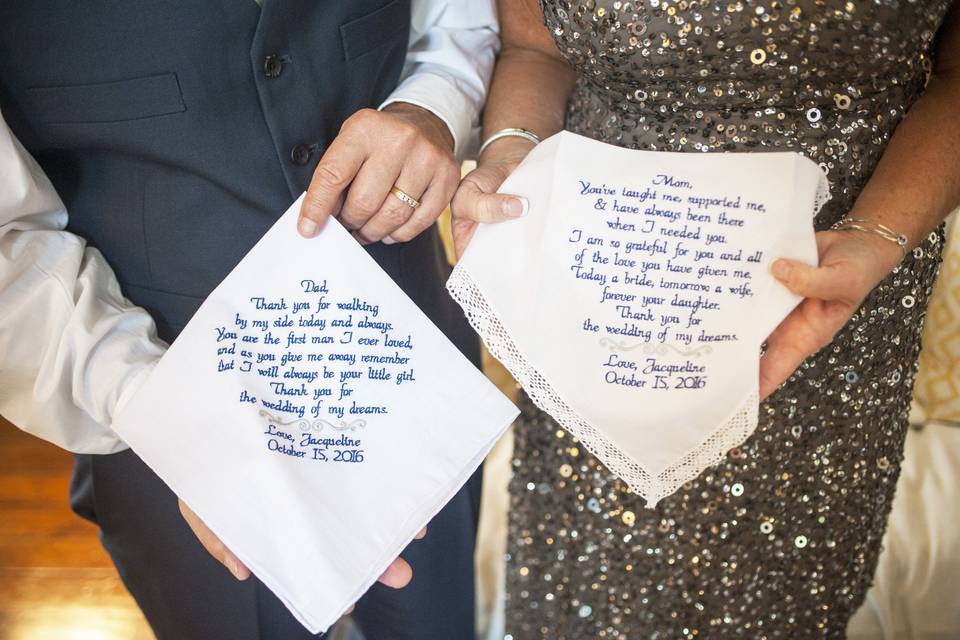 Dad,
Thank you for walking
by my side today and always.
You are the first man I ever loved,
and as you give me away remember
that I will always be your little girl.
Thank you for
the wedding of my dreams.
Love, Jacqueline
October 15, 2016
Mom,
You've taught me, supported me,
& have always been there
when I needed you.
I am so grateful for you and all
of the love you have given me.
Today a bride, tomorrow a wife,
forever your daughter.
Thank you for
the wedding of my dreams.
Love, Jacqueline
October 15, 2016